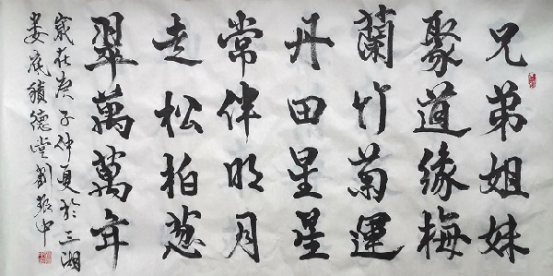 兄弟姐妹
聚道缘梅
蘭竹菊運
丹田星星
常伴明月
走松柏葱
翠萬萬年
歲在庚子仲夏於三湘
娄底積德堂劉中